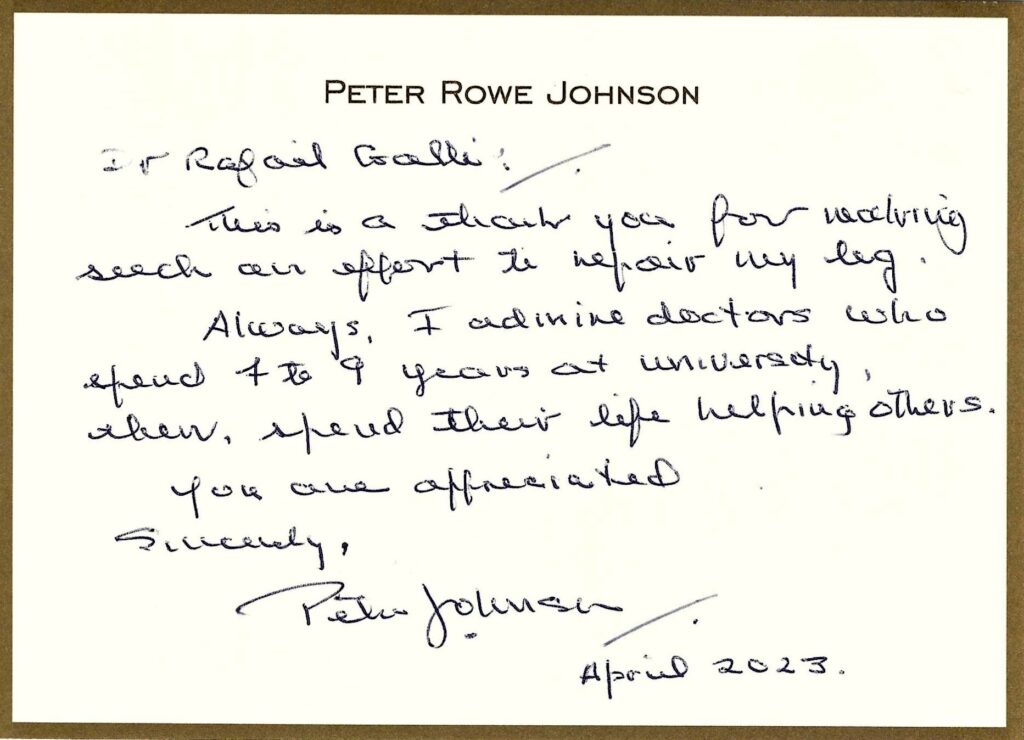 PETER ROWE JOHNSON
Dr Rafail Galli:
This is a thank you for making
such an effort to repair my leg.
Always, I admire doctors who
spend 7 to 9 years at university,
then, spend their life helping others.
You are appreciated
Sincerely,
Peter Johnson
April 2023.